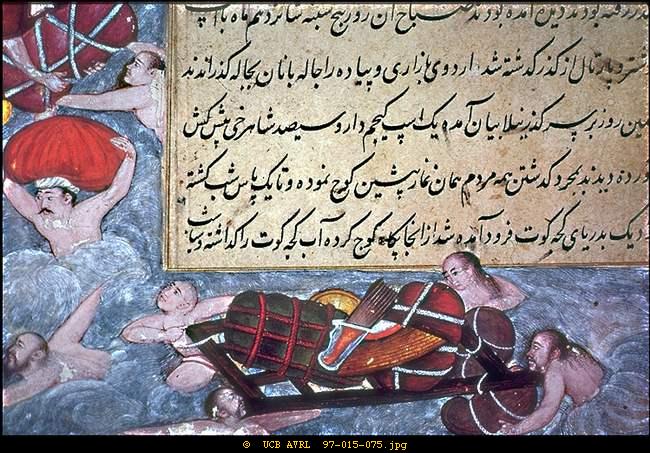 رفته بودند دیدن آمده بودند صباح آن روز پنج شنبه شانزدهم ماه با اسپ
شتر و بار تال از گذر گذشته شد اردوی بازاری و پیاده را جاله بانان بجاله گذراندند
مین روز بر سر گذر نیلابیان آمده یک اسپ کیجم دار و سیصد شاهرخی پیش کش
ورده دیدند بمجرد گذشتن همه مردم همان نماز پیشین کوچ نموده و تا یک پاس شب گذشته
دیک بدریای کچه کوت فرود آمده شد از انجا پکاه کوچ کرده آب کچه کوت را گذاشته
© UCB AVRL 97-015-075.jpg